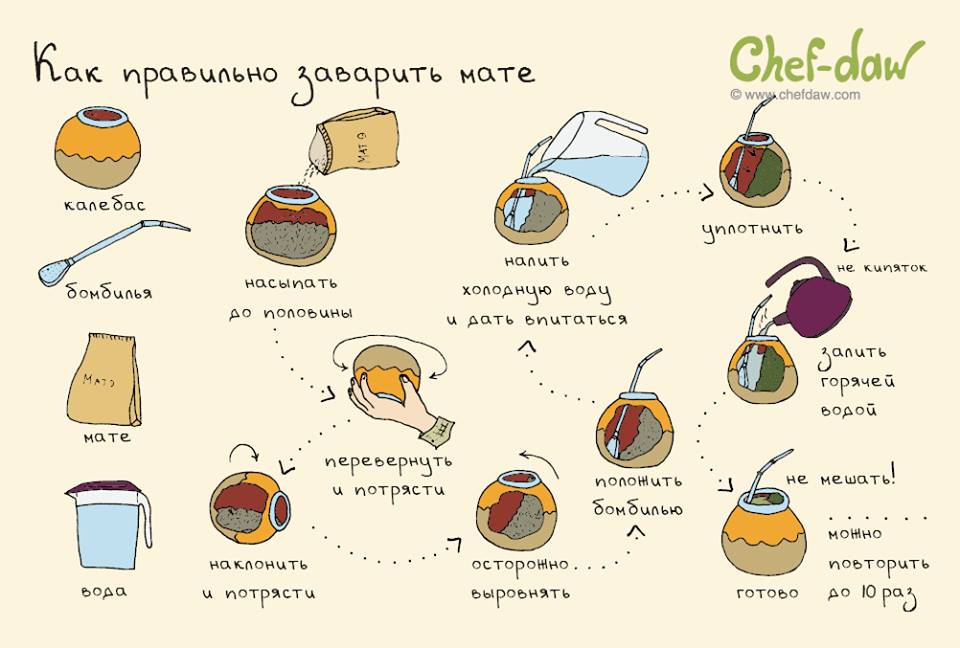 Как правильно заварить мате
Chef-daw
© www.chefdaw.com
калебас
бомбилья
Матэ
мате
вода
Матэ
насыпать
до половины
перевернуть
и потрясти
наклонить
и потрясти
осторожно
выровнять
положить
бомбилью
налить
холодную воду
и дать впитаться
уплотнить
не кипяток
залить
горячей
водой
не мешать!
готово
можно
повторить
до 10 раз